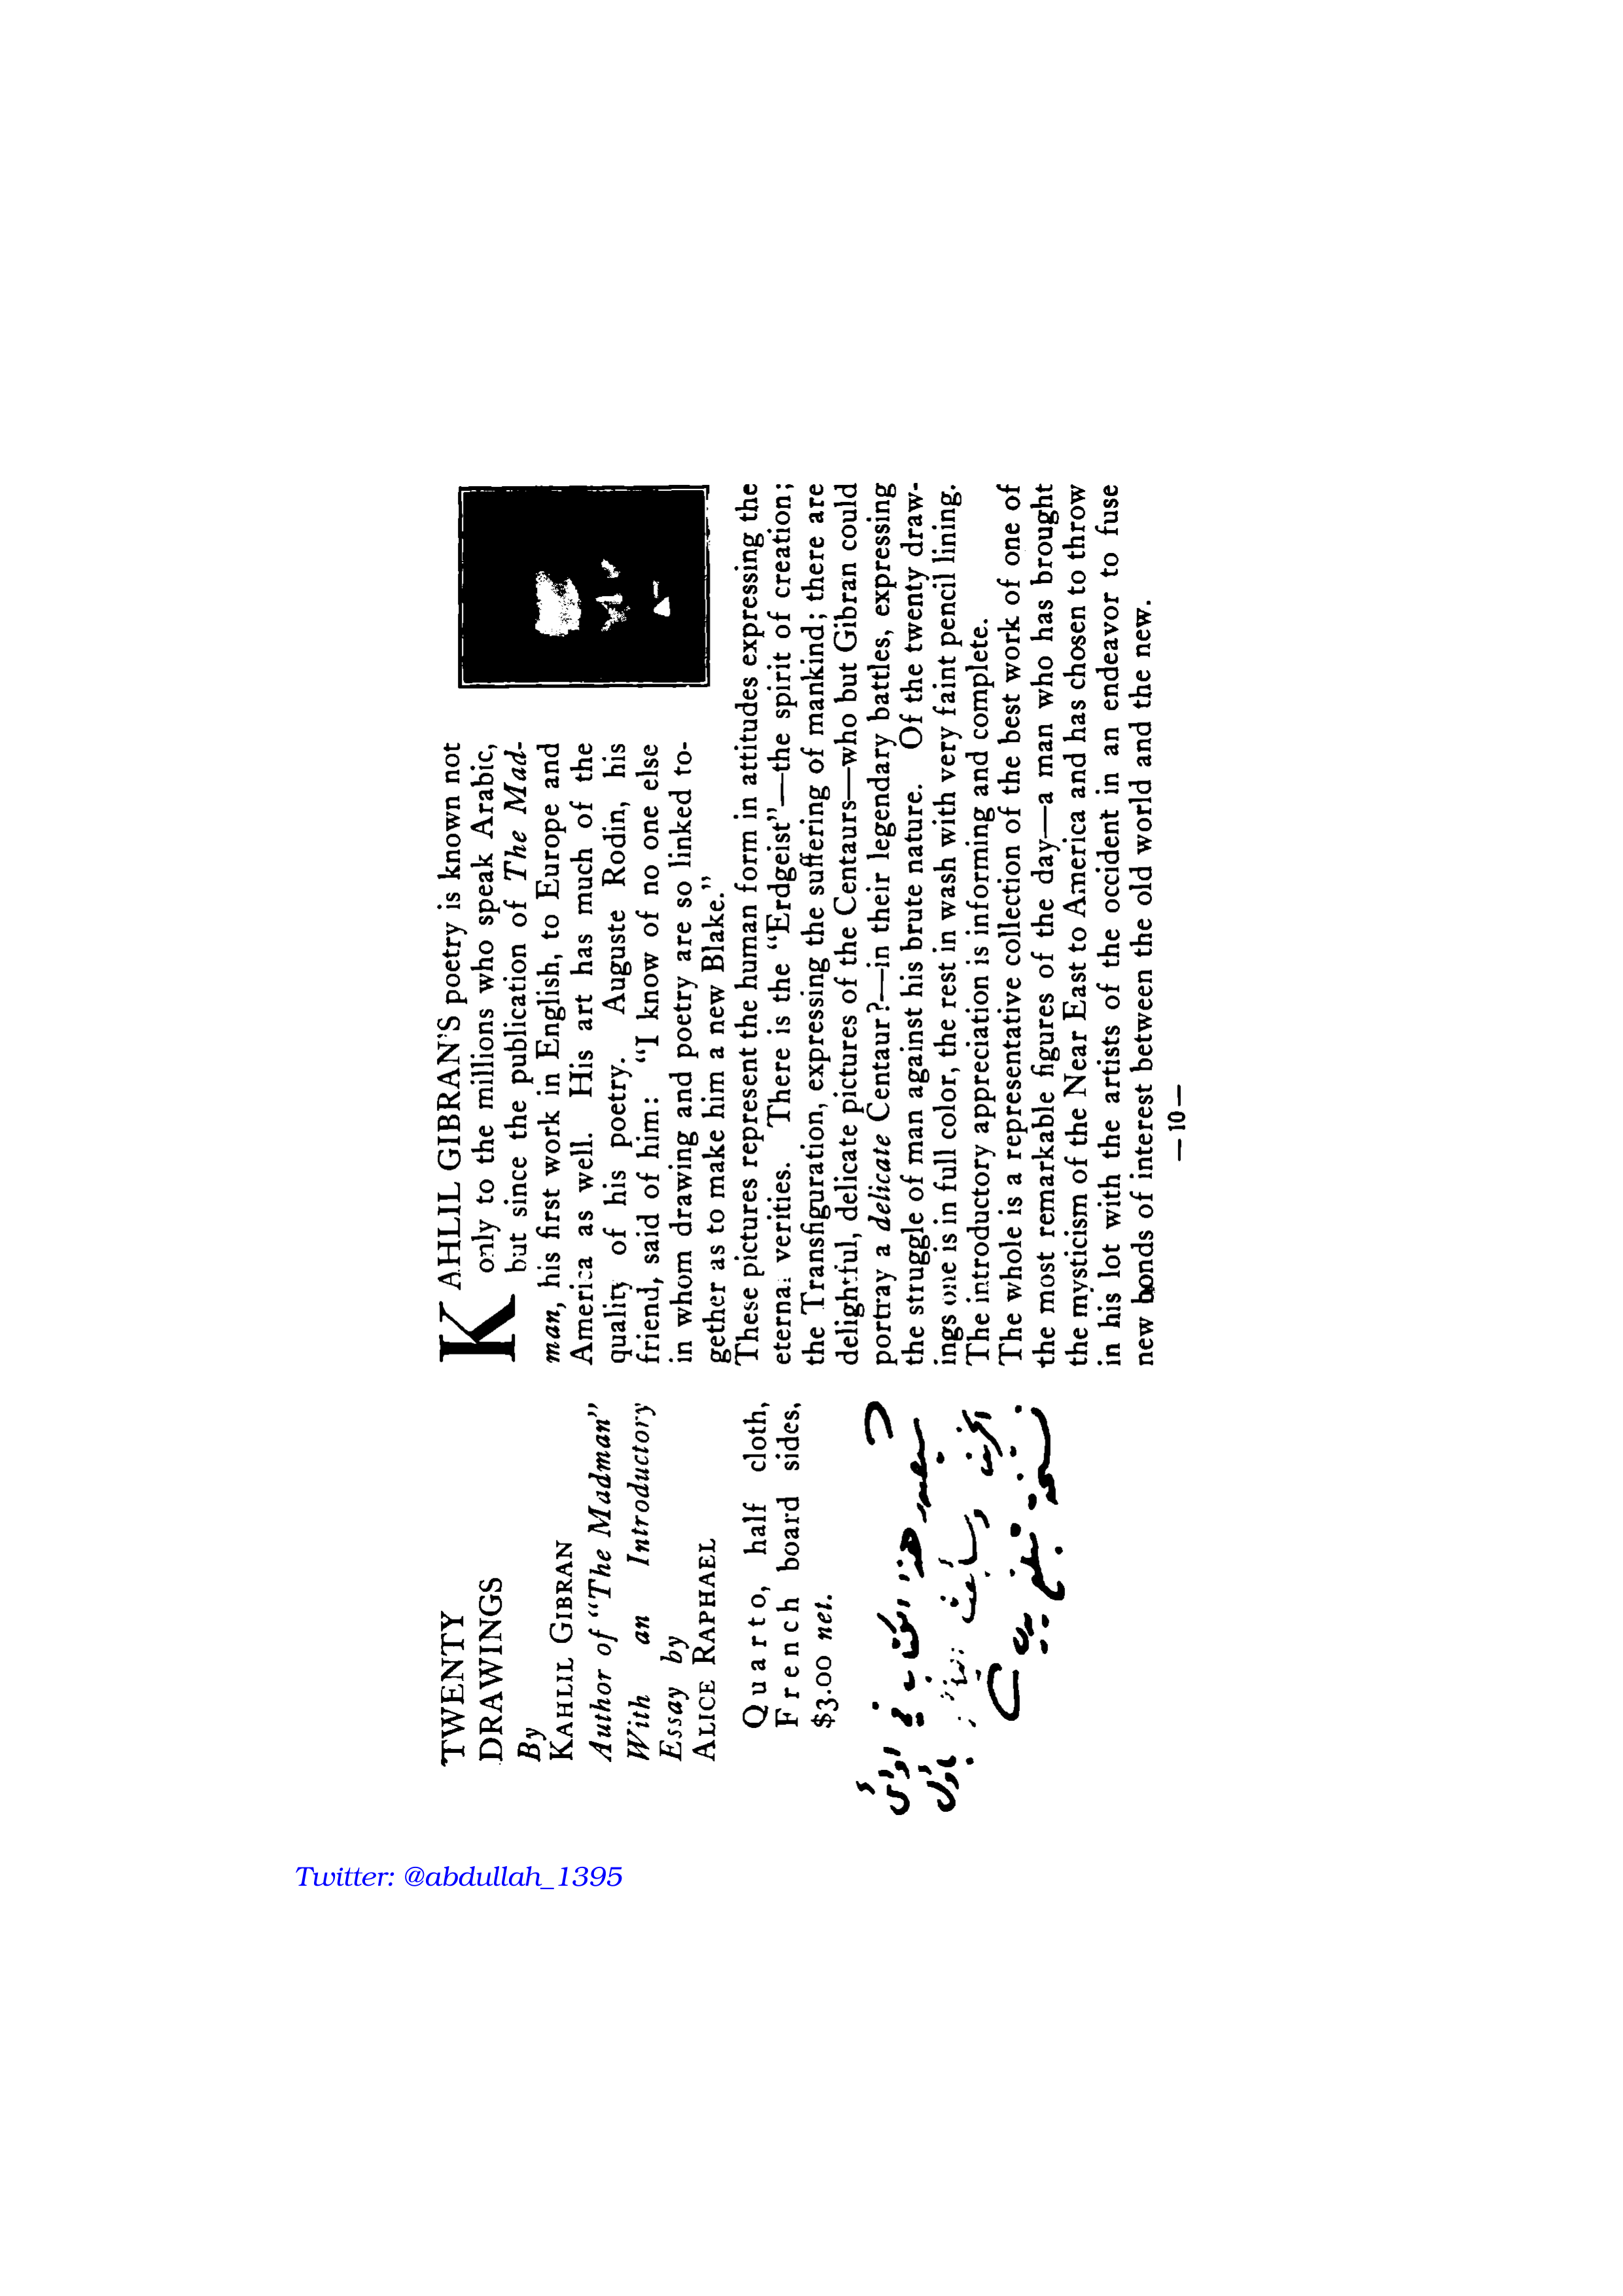 TWENTY
DRAWINGS
By
KAHLIL GIBRAN
Author of "The Madman"
With an Introductory
Essay by
ALICE RAPHAEL
Quarto, half cloth,
French board sides,
$3.00 net.
سيصدر هذا الكتاب في اوائل
وسأبعث
نسخة
KAHLIL GIBRAN'S poetry is known not
only to the millions who speak Arabic,
but since the publication of The Mad-
man, his first work in English, to Europe and
America as well. His art has much of the
quality of his poetry. Auguste Rodin, his
friend, said of him: "I know of no one else
in whom drawing and poetry are so linked to-
gether as to make him a new Blake."
These pictures represent the human form in attitudes expressing the
eternal verities. There is the "Erdgeist"—the spirit of creation;
the Transfiguration, expressing the suffering of mankind; there are
delightful, delicate pictures of the Centaurs—who but Gibran could
portray a delicate Centaur?—in their legendary battles, expressing
the struggle of man against his brute nature. Of the twenty draw-
ings one is in full color, the rest in wash with very faint pencil lining.
The introductory appreciation is informing and complete.
The whole is a representative collection of the best work of one of
the most remarkable figures of the day—a man who has brought
the mysticism of the Near East to America and has chosen to throw
in his lot with the artists of the occident in an endeavor to fuse
new bonds of interest between the old world and the new.
—10—
Twitter: @abdullah_1395